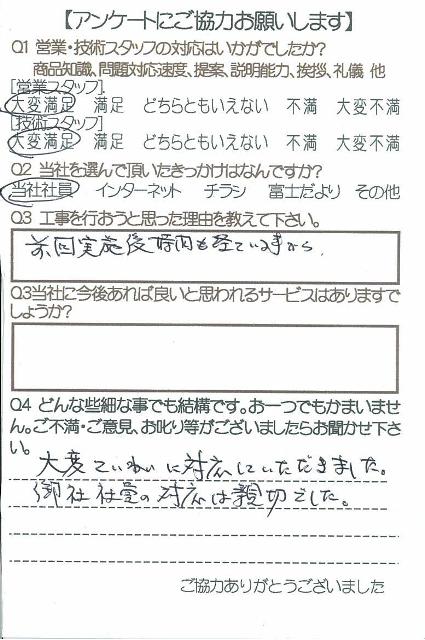 【アンケートにご協力お願いします】
Q1 営業・技術スタッフの対応はいかがでしたか?
商品知識、問題対応速度、提案、説明能力、挨拶、礼儀 他
[営業スタッフ]
大変満足 満足 どちらともいえない 不満 大変不満
[技術スタッフ]
大変満足 満足 どちらともいえない 不満 大変不満
Q2 当社を選んで頂いたきっかけはなんですか?
当社社員 インターネット チラシ 富士だより その他
Q3 工事を行おうと思った理由を教えて下さい。
前回実施後時間も経ている事から。
Q3当社に今後あれば良いと思われるサービスはありますで
しょうか?
Q4 どんな些細な事でも結構です。お一つでもかまいませ
ん。ご不満・ご意見、お叱り等がございましたらお聞かせ下さ
い。
大変ていねいに対応していただきました。
御社社員の対応は親切でした。
ご協力ありがとうございました